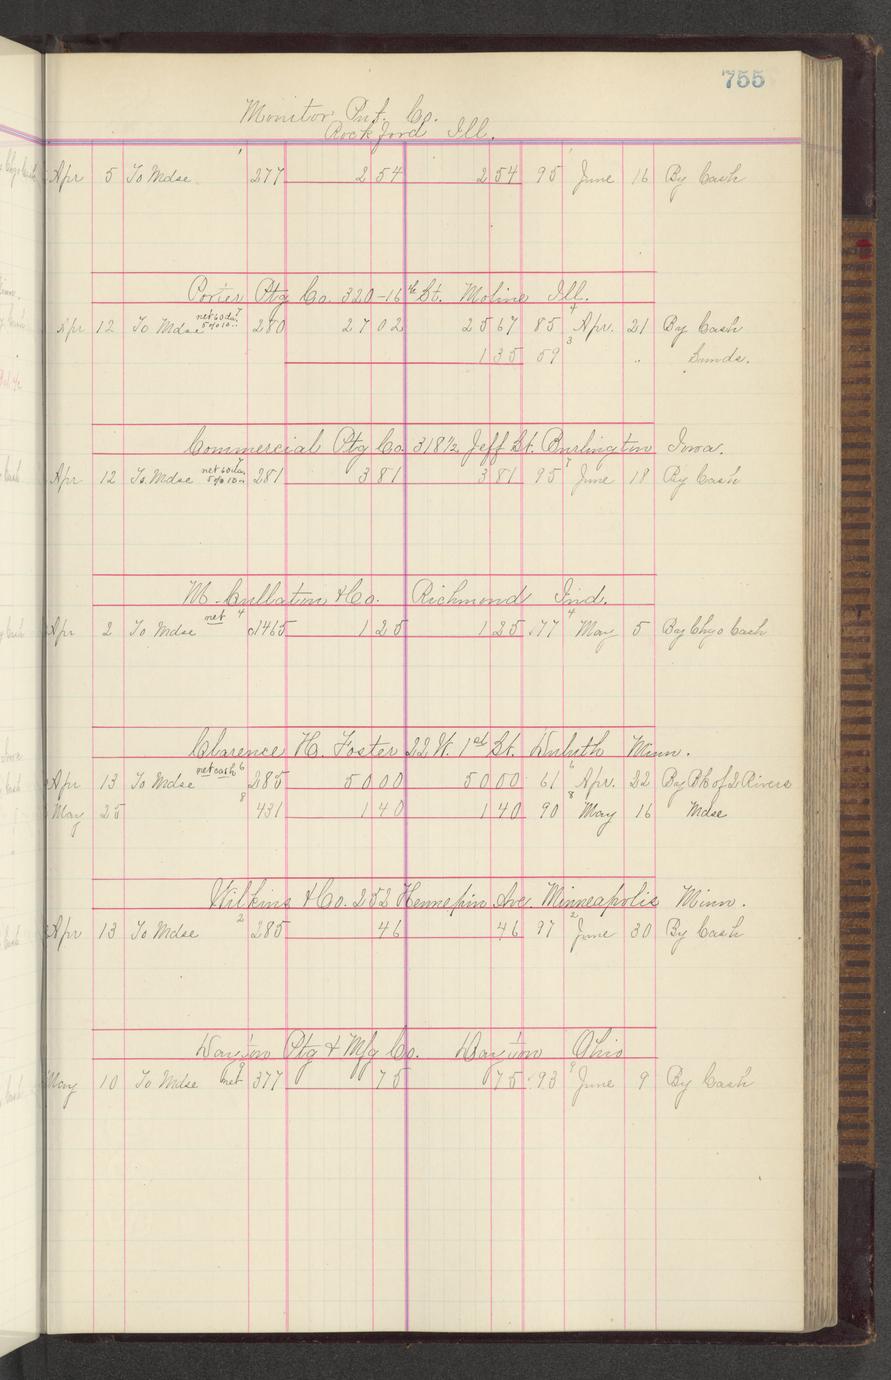 755
Monitor Pub. Co.
Rockford Ill.
Apr 5 To Mdse 277 2 54 2 54 95 June 16 By Cash
Porter Ptg Co. 320-16th St. Moline Ill.
Apr 12 To Mdse net 60 da. 5% 10 280 27 02 25 67 85 Apr. 21 By Cash
1 35 59 " Sunds.
Commercial Ptg Co 318½ Jeff St. Burlington Iowa.
Apr 12 To Mdse net 60 da 5% 10 281 3 81 3 81 95 June 18 By Cash
M. Cullaton & Co. Richmond Ind.
Apr 2 To Mdse net 1465 1 25 1 25 177 May 5 By Chgo Cash
Clarence H. Foster 22 W. 1st St. Duluth Minn.
Apr 13 To Mdse net cash 285 50 00 50 00 61 Apr. 22 By Bk of 2 Rivers
May 25 431 1 40 1 40 90 May 16 Mdse
Wilkins & Co. 252 Hennepin Ave. Minneapolis Minn.
Apr 13 To Mdse 285 46 46 97 June 30 By Cash
Dayton Ptg & Mfg Co. Dayton Ohio
May 10 To Mdse net 377 75 75 93 June 9 By Cash